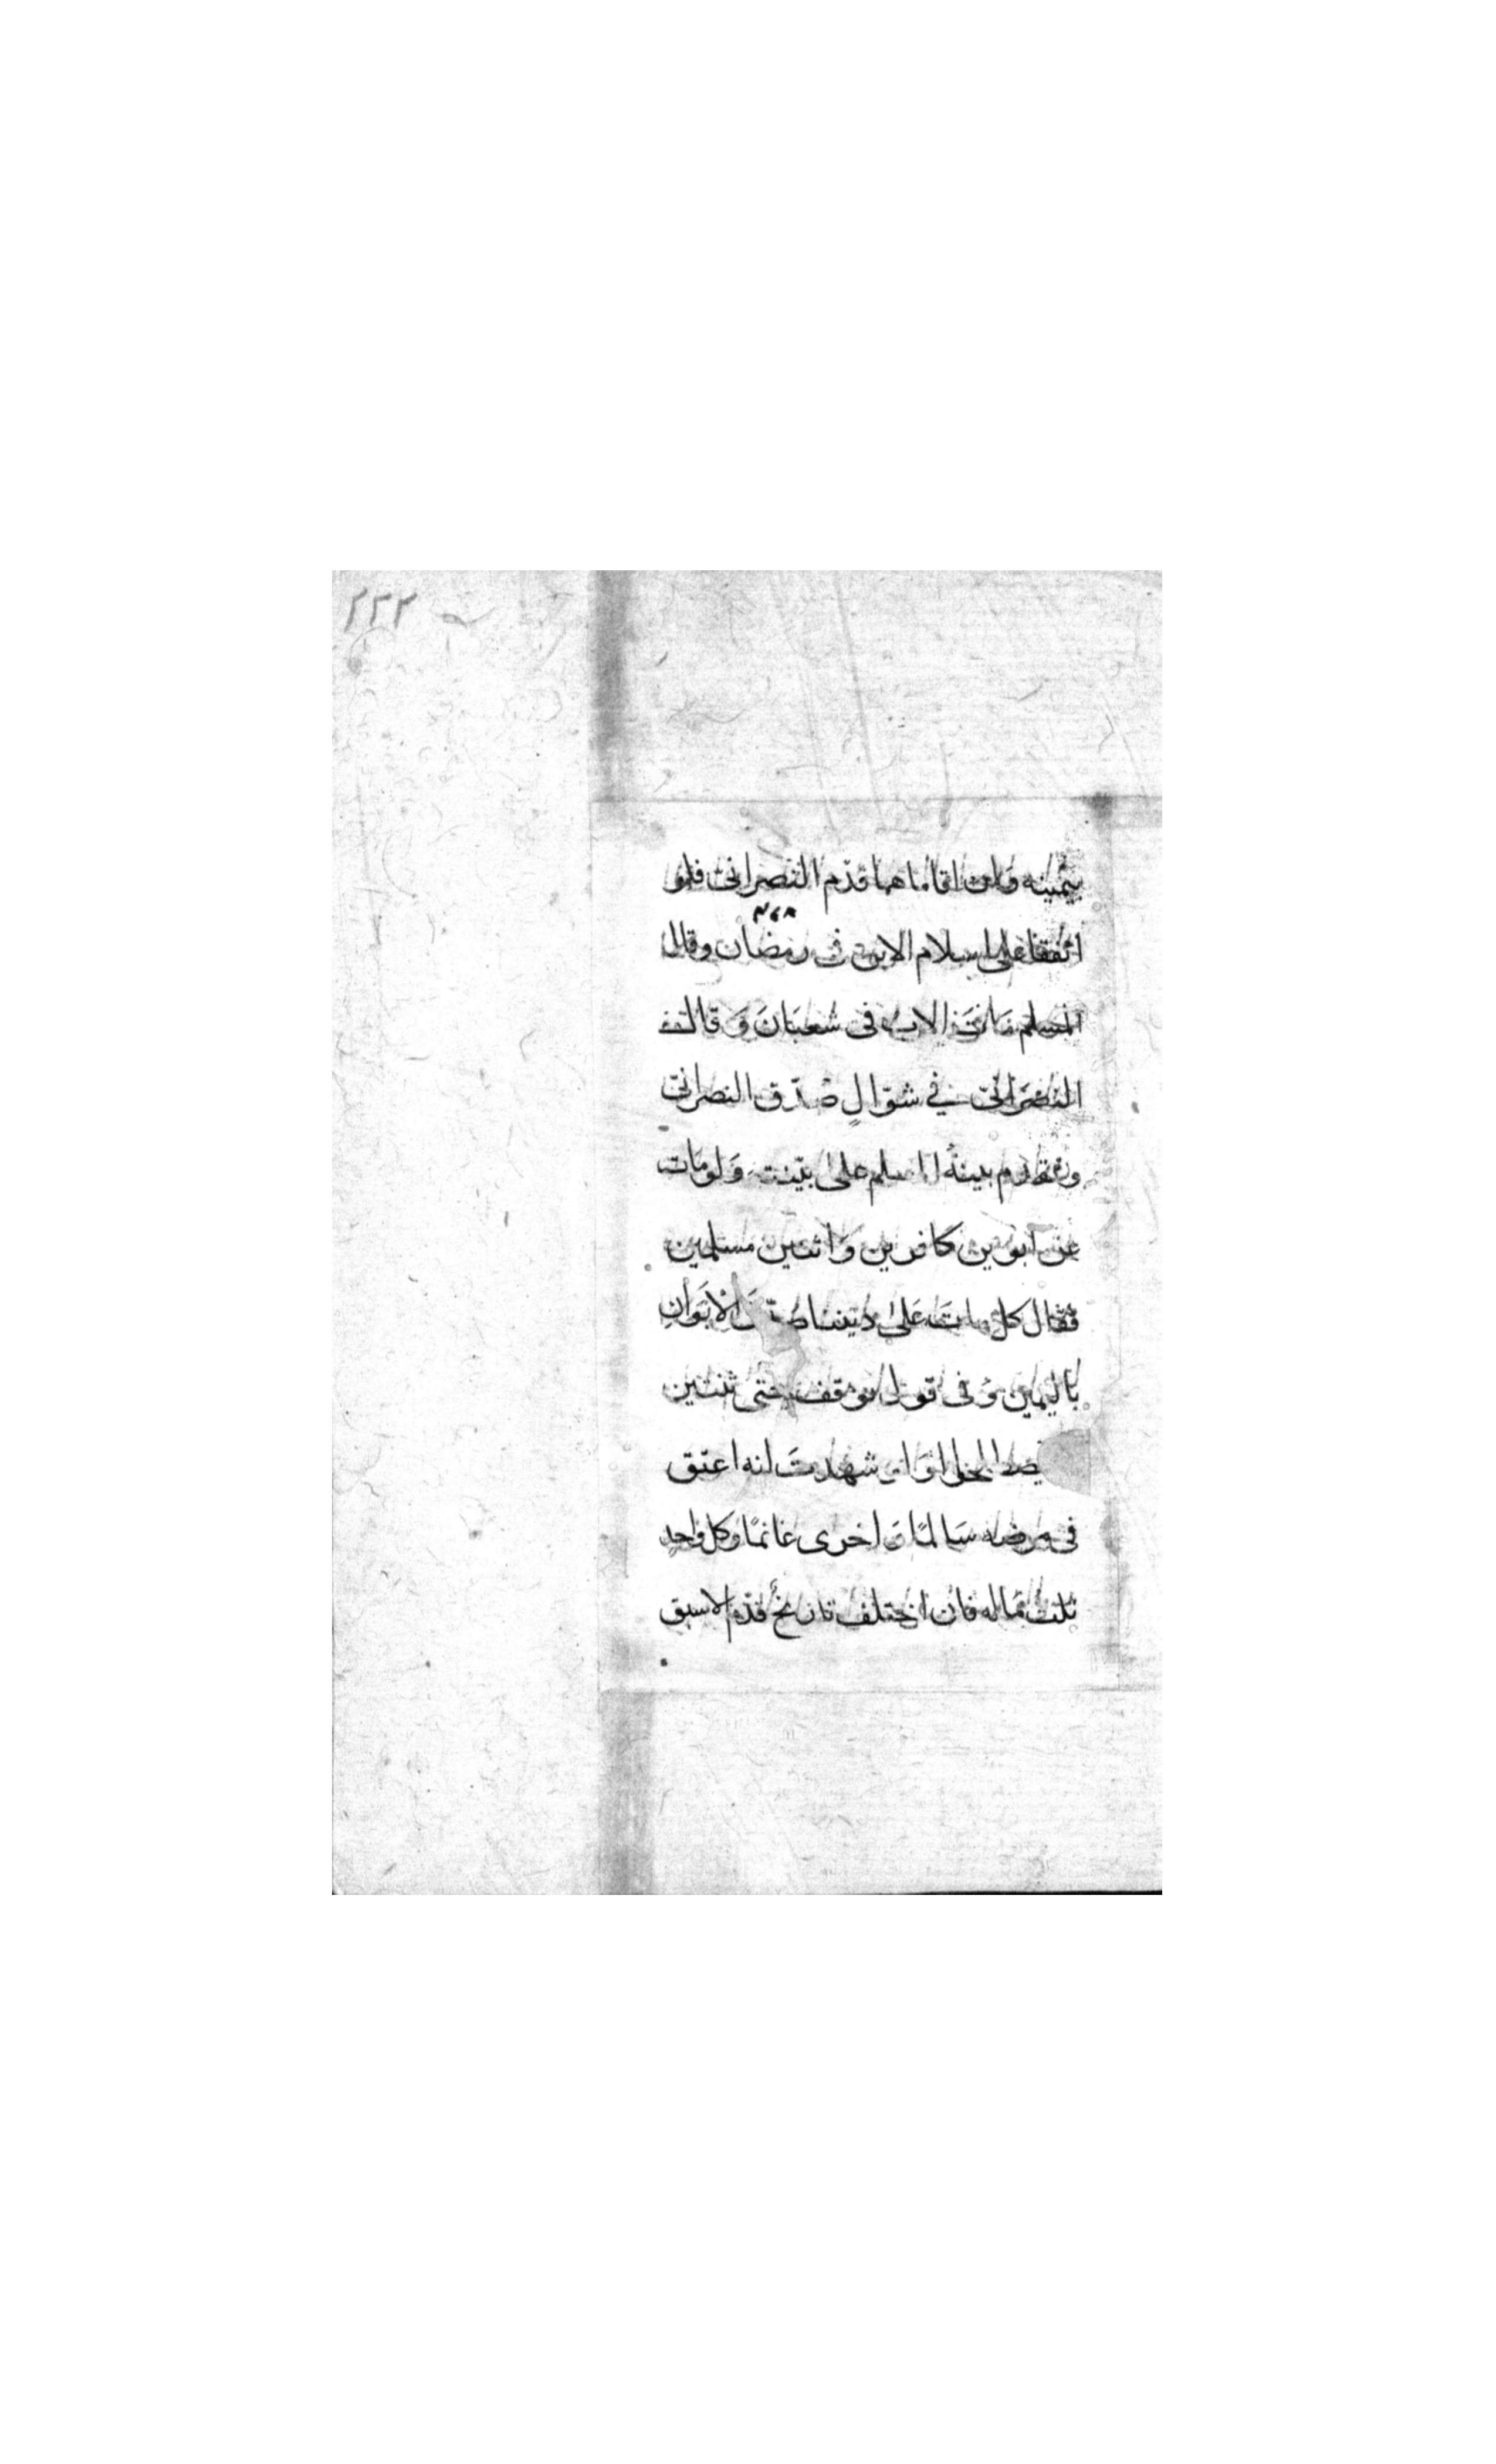 ٢٢٢
بيمينه وان اقاماهما قدّم النصرانى فلو
اتفقا على اسلام الابن فى رمضان وقال
المسلم مات الاب فى شعبان وقال
النصرانى فى شوّالٍ صُدّق النصرانى
وتقدم بينة المسلم على بيّنته ولو مات
عن ابوين كافرين واثنين مسلمين
فقال كل مات على ديننا صُدّق الأبوانِ
باليمين وفى قول يوقف حتى
يصطلحوا او ولو شهدت انه اعتق
فى مرضه سالمًا واخرى غانمًا وكل واحدٍ
ثلث ماله فان اختلف تاريخٌ قدّم الاسبق